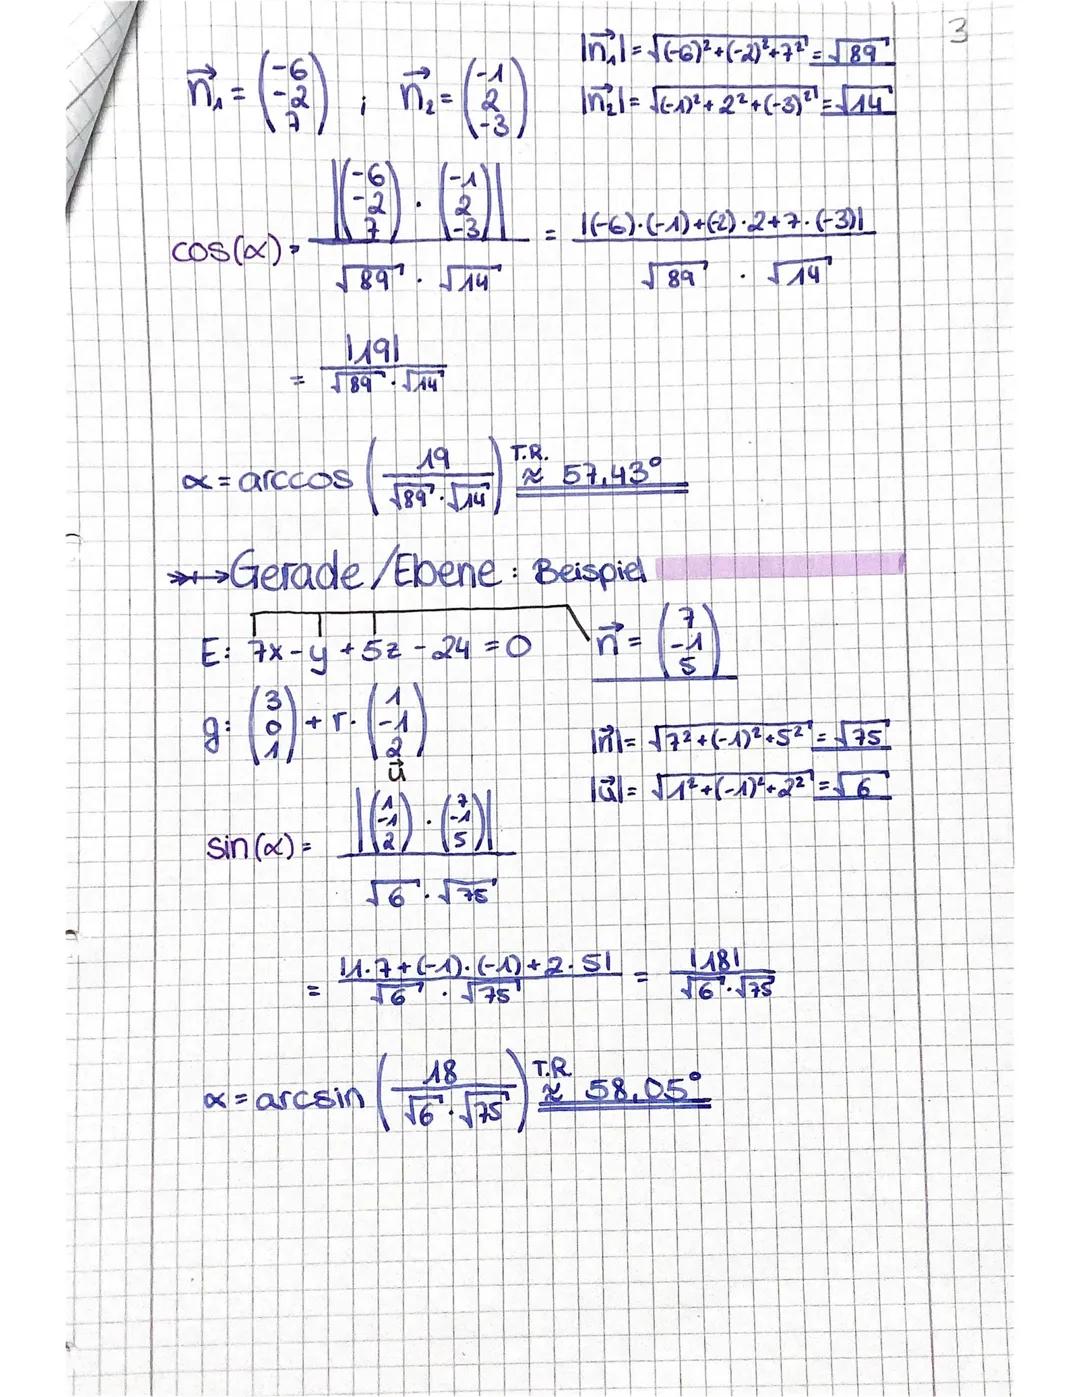 3
n⃗₁ = (-6 -2 7) ; n⃗₂ = (-1 2 -3)
|n⃗₁| = √((-6)²+(-2)²+7²) = √89
|n⃗₂| = √((-1)²+2²+(-3)²) = √14
cos(α) = |(-6 -2 7) · (-1 2 -3)| / (√89 · √14) = |(-6)·(-1)+(-2)·2+7·(-3)| / (√89 · √14)
= |19| / (√89 · √14)
α = arccos (19 / (√89 · √14)) T.R. ≈ 57,43°
Gerade/Ebene: Beispiel
E: 7x - y + 5z - 24 = 0
n⃗ = (7 -1 5)
g: (3 0 1) + r · (1 -1 2)
u⃗
|n⃗| = √(7²+(-1)²+5²) = √75
|u⃗| = √(1²+(-1)²+2²) = √6
sin(α) = |(1 -1 2) · (7 -1 5)| / (√6 · √75)
= |1·7+(-1)·(-1)+2·5| / (√6 · √75) = |18| / (√6 · √75)
α = arcsin (18 / (√6 · √75)) T.R. ≈ 58,05°